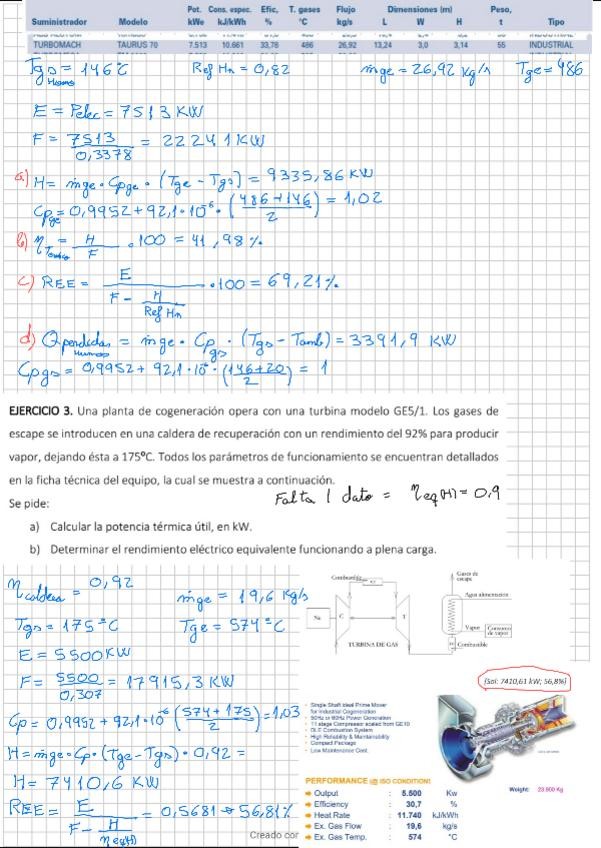 Pot. Cons. espec. Efic, T. gases Flujo Dimensiones (m) Peso,
Suministrador Modelo kWe kJ/kWh % °C kg/s L W H t Tipo
TURBOMACH TAURUS 70 7.513 10.661 33,78 486 26,92 13,24 3,0 3,14 55 INDUSTRIAL
Tgs = 146°C Ref Hn = 0,82 ṁge = 26,92 Kg/s Tge = 486
Humos
E = Pelec = 7513 KW
F = 7513 / 0,3378 = 22241 KW
a) H = ṁge · Cpge · (Tge - Tgs) = 9335,86 KW
Cpge = 0,9952 + 92,1 · 10⁻⁶ · ( 486 + 146 / 2 ) = 1,02
b) η = H / F · 100 = 41,98 %
c) REE = E / F - H / Ref Hn · 100 = 69,21 %
d) Q perdidas = ṁge · Cpgs · (Tgs - Tamb) = 3391,9 KW
Humos
Cpgs = 0,9952 + 92,1 · 10⁻⁶ · ( 146 + 20 / 2 ) = 1
EJERCICIO 3. Una planta de cogeneración opera con una turbina modelo GE5/1. Los gases de
escape se introducen en una caldera de recuperación con un rendimiento del 92% para producir
vapor, dejando ésta a 175ºC. Todos los parámetros de funcionamiento se encuentran detallados
en la ficha técnica del equipo, la cual se muestra a continuación.
Falta 1 dato = ηeq(H) = 0,9
Se pide:
a) Calcular la potencia térmica útil, en kW.
b) Determinar el rendimiento eléctrico equivalente funcionando a plena carga.
η caldera = 0,92 ṁge = 19,6 Kg/s
Tgs = 175°C Tge = 574°C
E = 5500 KW
F = 5500 / 0,307 = 17915,3 KW
Cp = 0,9952 + 92,1 · 10⁻⁶ ( 574 + 175 / 2 ) = 1,03
H = ṁge · Cp · (Tge - Tgs) · 0,92 =
H = 7410,6 KW
REE = E / F - H / ηeq(H) = 0,5681 → 56,81 %
Combustible
Gases de
escape
Agua alimentación
C
T
Vapor
Consumo
de vapor
TURBINA DE GAS
Combustible
(Sol: 7410,61 kW; 56,8%)
Single Shaft Ideal Prime Mover
for Industrial Cogeneration
50Hz or 60Hz Power Generation
11 stage Compressor scaled from GE10
DLE Combustion System
High Reliability & Maintainability
Compact Package
Low Maintenance Cost
PERFORMANCE (@ ISO CONDITION)
Output : 5.500 Kw
Efficiency : 30,7 %
Heat Rate : 11.740 kJ/kWh
Ex. Gas Flow : 19,6 kg/s
Ex. Gas Temp. : 574 °C
Weight: 23.900 Kg
Creado con